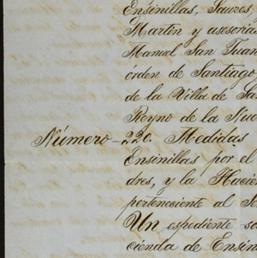 Ensinillas, Sauzes
Martin y asesoria
Manuel San Juan
orden de Santiago
de la Villa de Sa
Reyno de la Nue
Número - 220. Medidas
Ensinillas por el
dres, y la Hacien
perteneciente al S
Un espediente so
cienda de Ensin